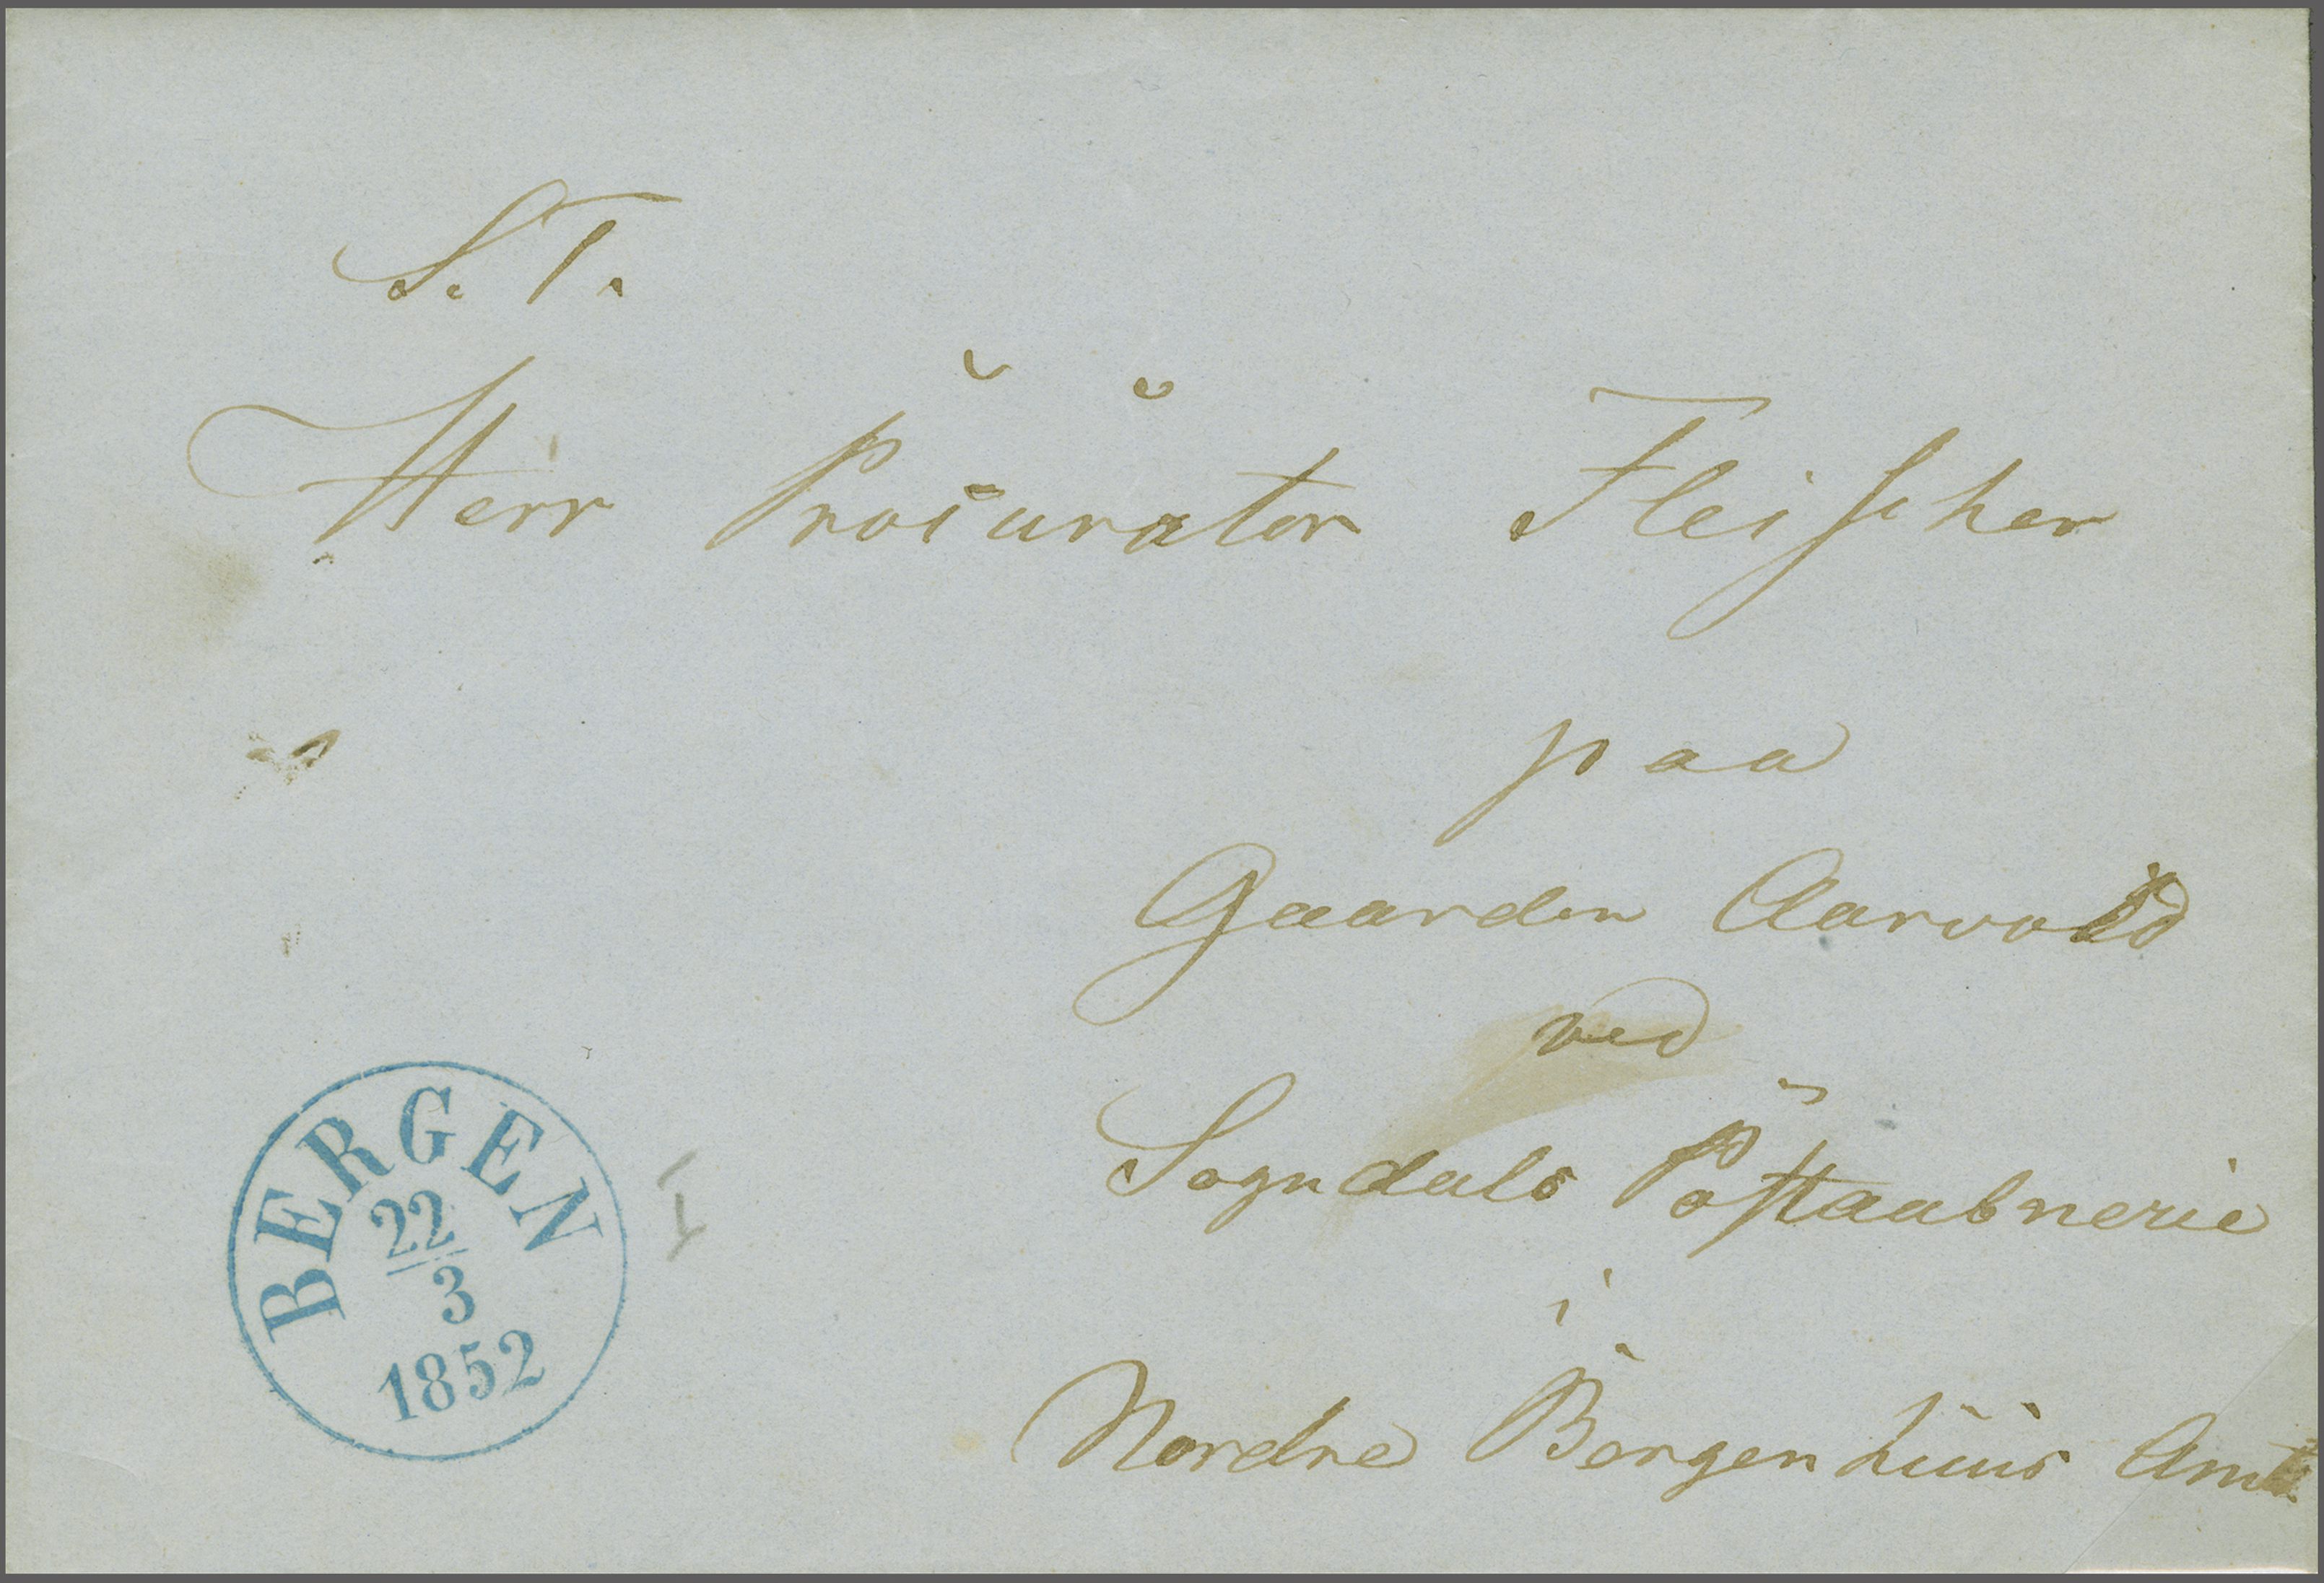 S. T.
Herr Procurator Fleischer
paa
Gaarden Aarvold
ved
Sogndals Postaabnerie
i
Nordre Bergenhuus Amt
BERGEN
22
3
1852